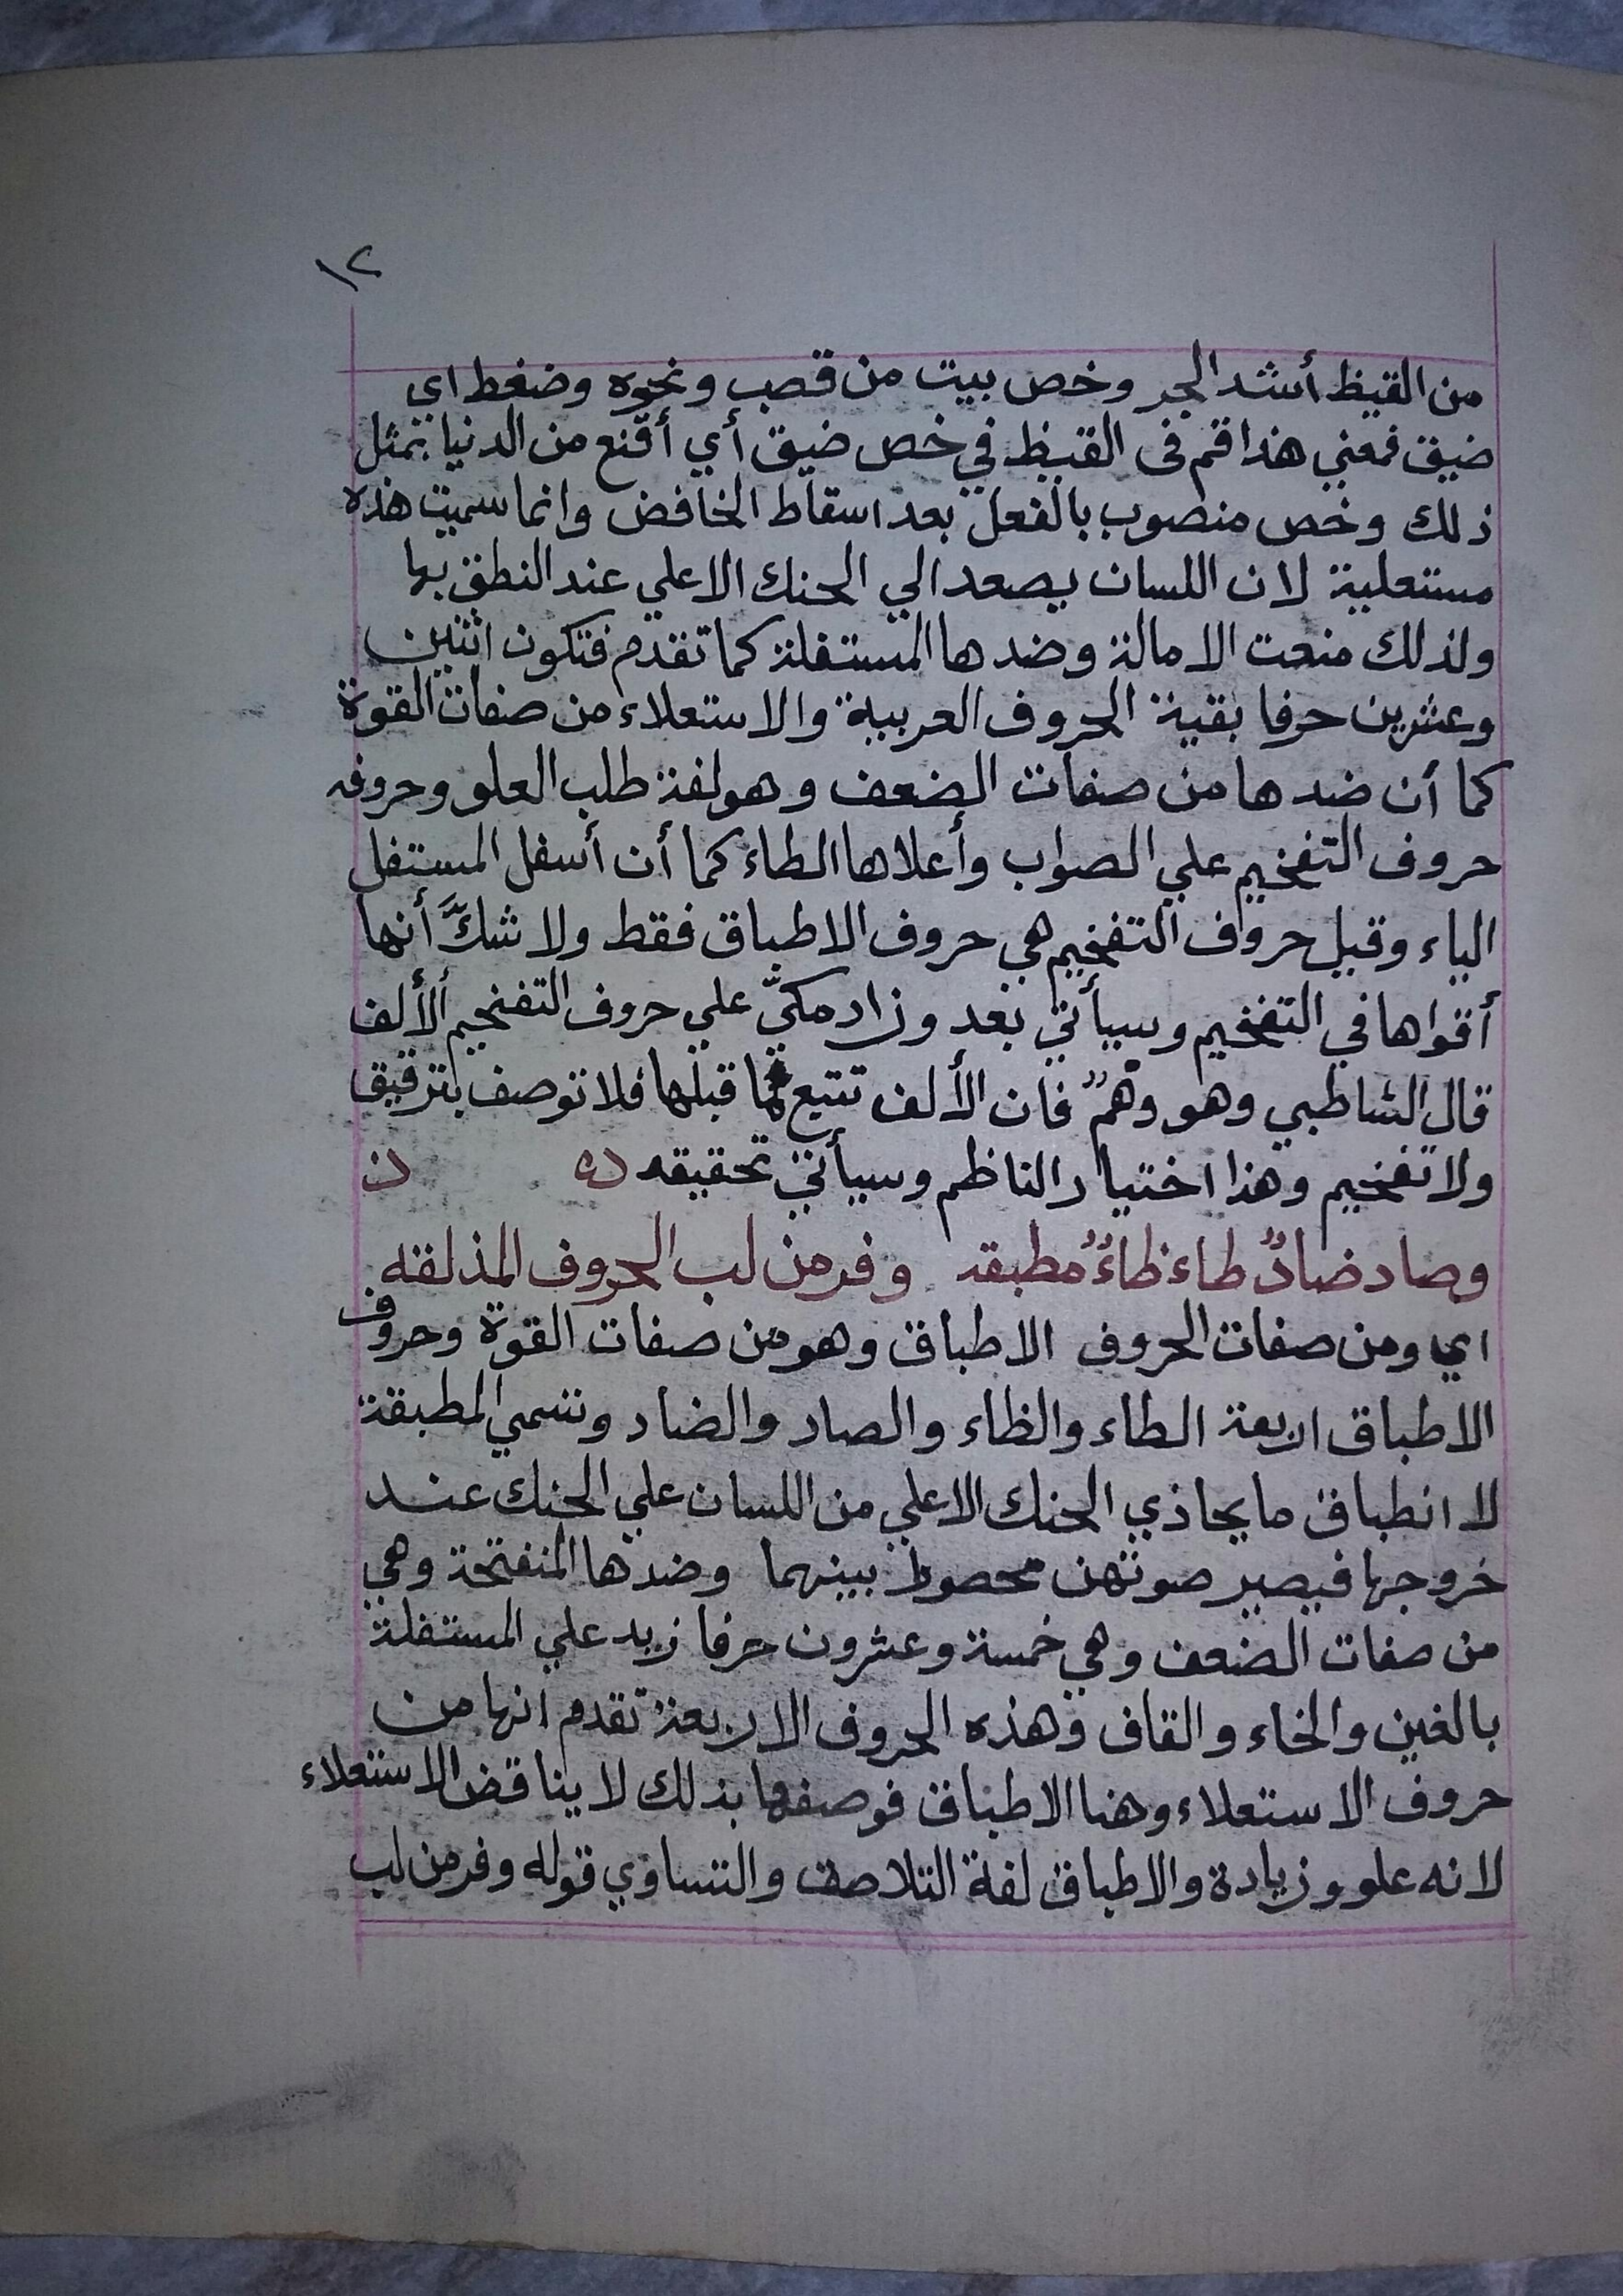 ١٢
من القيظ أشد الحر وخص بيت من قصب ونحوه وضغط اي
ضيق فمعني هذا قم فى القيظ في خص ضيق أي أقنع من الدنيا بمثل
ذلك وخص منصوب بالفعل بعد اسقاط الخافض وانما سميت هذه
مستعلية لان اللسان يصعد الي الحنك الاعلي عند النطق بها
ولذلك منعت الامالة وضدها المستفلة كما تقدم فتكون اثنين
وعشرين حرفا بقية الحروف العربية والاستعلاء من صفات القوة
كما أن ضدها من صفات الضعف وهو لغة طلب العلو وحروفه
حروف التفخيم علي الصواب وأعلاها الطاء كما أن أسفل المستفل
الياء وقيل حروف التفخيم هي حروف الاطباق فقط ولا شكَّ أنها
أقواها في التفخيم وسيأتي بعد وزاد مكيّ علي حروف التفخيم الألف
قال الشاطبي وهو وهمٌ فان الألف تتبع ما قبلها فلا توصف بترقيق
ولا تفخيم وهذا اختيار الناظم وسيأتي تحقيقه
وصاد ضادٌ طاء ظاءٌ مطبقه وفر من لب الحروف المذلقه
اي ومن صفات الحروف الاطباق وهو من صفات القوة وحروف
الاطباق اربعة الطاء والظاء والصاد والضاد وتسمي المطبقة
لا انطباق ما يحاذي الحنك الاعلي من اللسان علي الحنك عند
خروجها فيصير صوتهن محصورا بينهما وضدها المنفتحة وهي
من صفات الضعف وهي خمسة وعشرون حرفا زيد علي المستفلة
بالغين والخاء والقاف وهذه الحروف الاربعة تقدم انها من
حروف الاستعلاء وهنا الاطباق فوصفها بذلك لا يناقض الاستعلاء
لانه علو وزيادة والاطباق لغة التلاصق والتساوي قوله وفر من لب